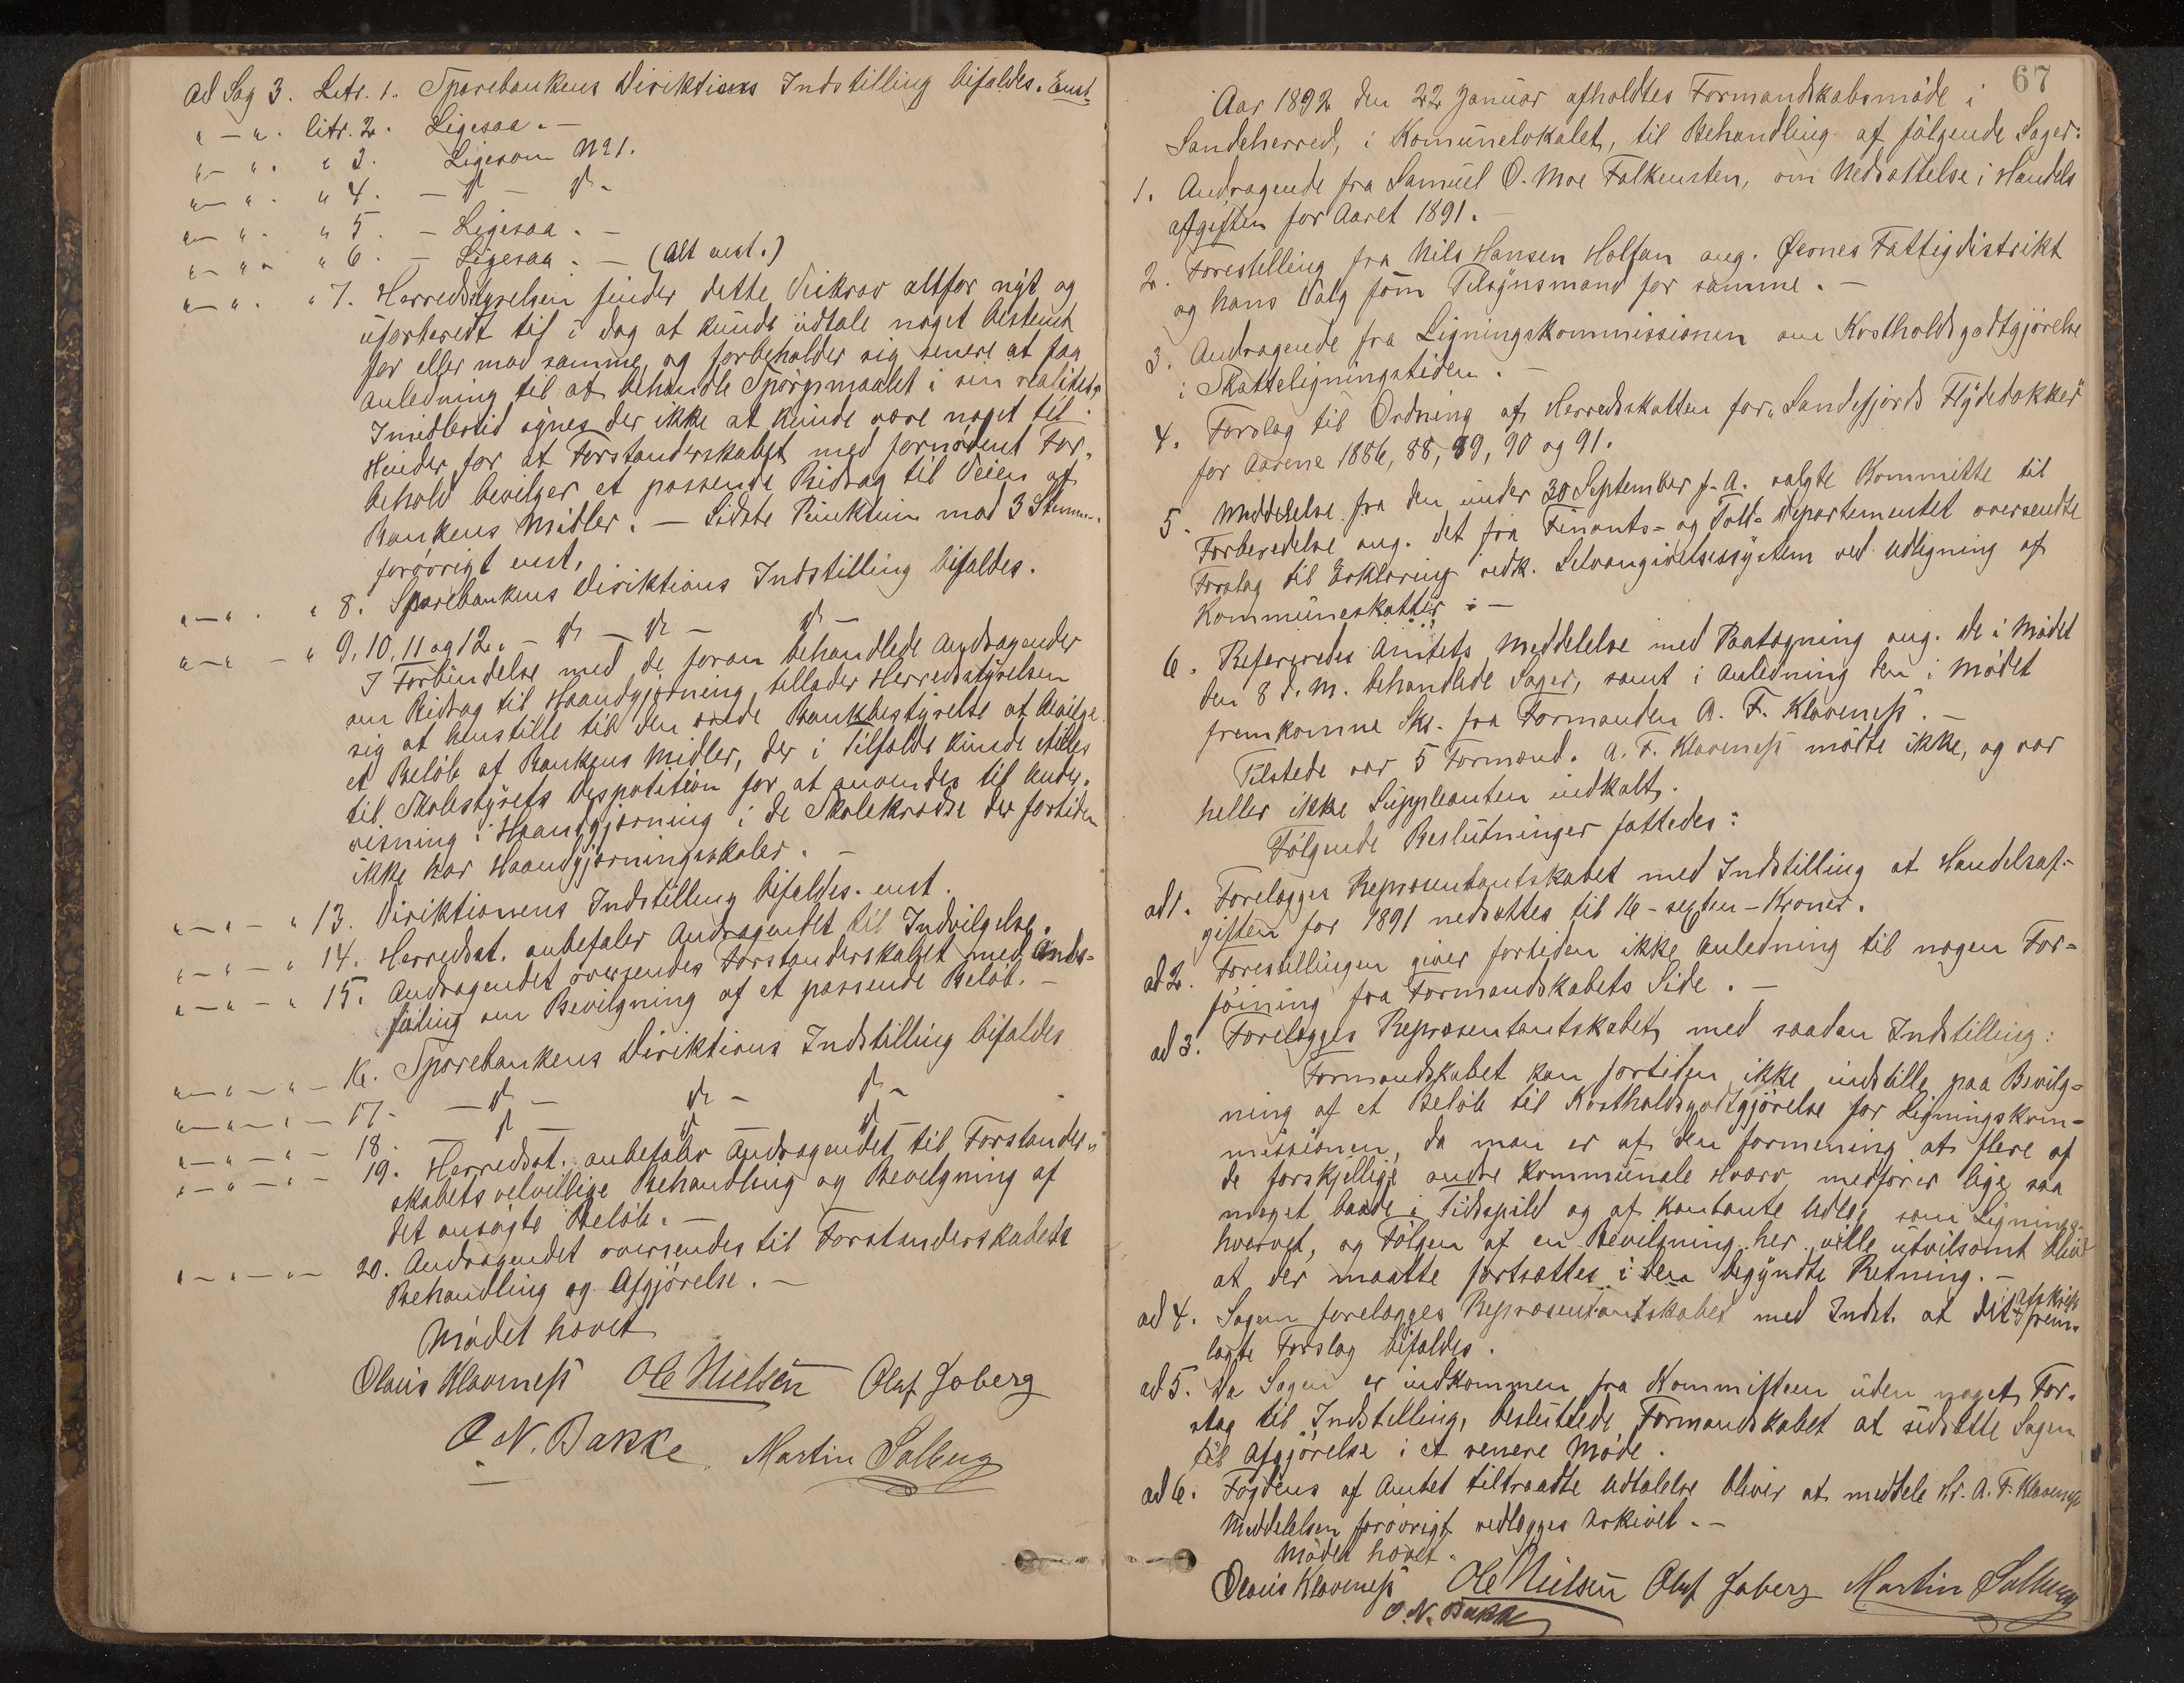 Ad Sag 3. Litr. 1. Sparebankens Direktions Indstilling bifaldes. Enst.
" — ". litr. 2. Ligesaa. —
" — ". " 3. Ligesom No 1.
" — ". " 4. — dr — dr —
" — ". " 5. — Ligesaa. —
" — ". " 6. — Ligesaa. — (Alt enst.)
" — ". " 7. Herredsstyrelsen finder dette Veikrav altfor nyt og
uforberedt til i dag at kunde udtale noget bestemt
for eller mod samme, og forbeholder sig senere at faa
anledning til at behandle Spörgsmaalet i sin realitet.
Imidlertid synes der ikke at kunde være noget til
Hinder for at Forstanderskabet med fornødent For-
behold bevilger et passende Bidrag til Veien af
Bankens Midler. — Sidste Punktum mod 3 Stemmer
forövrigt enst.
" — ". " 8. Sparebankens Direktions Indstilling bifaldes.
" — " — " 9, 10, 11 og 12. — dr — dr — dr —
I Forbindelse med de foran behandlede Andragender
om Bidrag til Haandgjerning tillader Herredsstyrelsen
sig at henstille til den ærede Bankbestyrelse at bevilge
et Belöb af Bankens Midler, der i Tilfælde kunde stilles
til Skolestyrets Disposition for at anvendes til Under-
visning i Haandgjerning i de Skolekredse der fortiden
ikke har Haandgjerningsskoler. —
" — " — " 13. Direktionens Indstilling bifaldes. enst.
" — " — " 14. Herredsst. anbefaler Andragendet til Indvilgelse.
" — " — " 15. Andragendet oversendes Forstanderskabet med Anbe-
faling om Bevilgning af et passende Belöb. —
" — " — " — 16. Sparebankens Direktions Indstilling bifaldes
" — " — " — 17. — dr — dr — dr —
" — " — " — 18. dr dr dr
" — " — " — 19. Herredsst. anbefaler Andragendet til Forstander-
skabets velvillige Behandling og Bevilgning af
det ansögte Belöb. —
" — " — " — 20. Andragendet oversendes til Forstanderskabets
Behandling og Afgjörelse. —
Mödet hævet
Olaus Klaveness Ole Nielsen Oluf Joberg
O N. Bakke Martin Solberg
67
Aar 1892 den 22 Januar afholdtes Formandskabsmöde i
Sandeherred, i Komunelokalet, til Behandling af fölgende Sager:
1. Andragende fra Samuel O. Moe Falkensten, om Nedsættelse i Handels
afgiften for Aaret 1891. —
2. Forestilling fra Nils Hansen Holtan ang. Örsnes Fattigdistrikt
og hans Valg som Tilsynsmand for samme. —
3. Andragende fra Ligningskommissionen om Kostholdsgodtgjörelse
i Skatteligningstiden. —
4. Forslag til Ordning af Herredsskatten for "Sandefjords Flydedokker"
for Aarene 1886, 88, 89, 90 og 91.
5. Meddelelse fra den under 30 September f. A. valgte Kommitte til
Forberedelse ang. det fra Finants- og Told-Departementet oversendte
Forslag til Erklæring vedk. Selvangivelsessystem ved Udligning af
Kommuneskatter. —
6. Refereredes Amtets Meddelelse med Paategning ang. de i Mødet
den 8 d. M. behandlede Sager, samt i Anledning den i Mødet
fremkomne Skr. fra Formanden A. F. Klaveness. —
Tilstede var 5 Formænd. A. F. Klaveness mötte ikke, og var
heller ikke Suppleanten indkalt.
Fölgende Beslutninger fattedes:
ad 1. Forelægges Repræsentantskabet med Indstilling at Handelsaf-
giften for 1891 nedsættes til 16 - sexten - Kroner.
ad 2. Forestillingen giver fortiden ikke Anledning til nogen For-
föining fra Formandskabets Side. —
ad 3. Forelægges Repræsentantskabet med saadan Indstilling:
Formandskabet kan fortiden ikke indstille paa Bevilg-
ning af et Belöb til Kostholdsgodtgjörelse for Ligningskom-
missionen, da man er af den formening at flere af
de forskjellige andre kommunale Hverv, medförer lige saa
meget baade i Tidsspild og af kontante Udlæg som Lignings-
hvervet, og Fölgen af en Bevilgning her ville utvilsomt blive
at der maatte fortsættes i den begyndte Retning. —
ad 4. Sagen forelægges Repræsentantskabet med Indst. at det i Afskrift frem-
lagte Forslag bifaldes.
ad 5. Da Sagen er indkommen fra Kommitteen uden noget For-
slag til Indstilling, besluttede Formandskabet at udsætte Sagen
til Afgjörelse i et senere Möde.
ad 6. Fogdens af Amtet tiltraadte Udtalelse bliver at meddele Hr. A. F. Klaveness
Meddelelsen forövrigt vedlægges Arkivet. —
Mödet hævet.
Olaus Klaveness Ole Nielsen Oluf Joberg Martin Solberg
O. N. Bakke